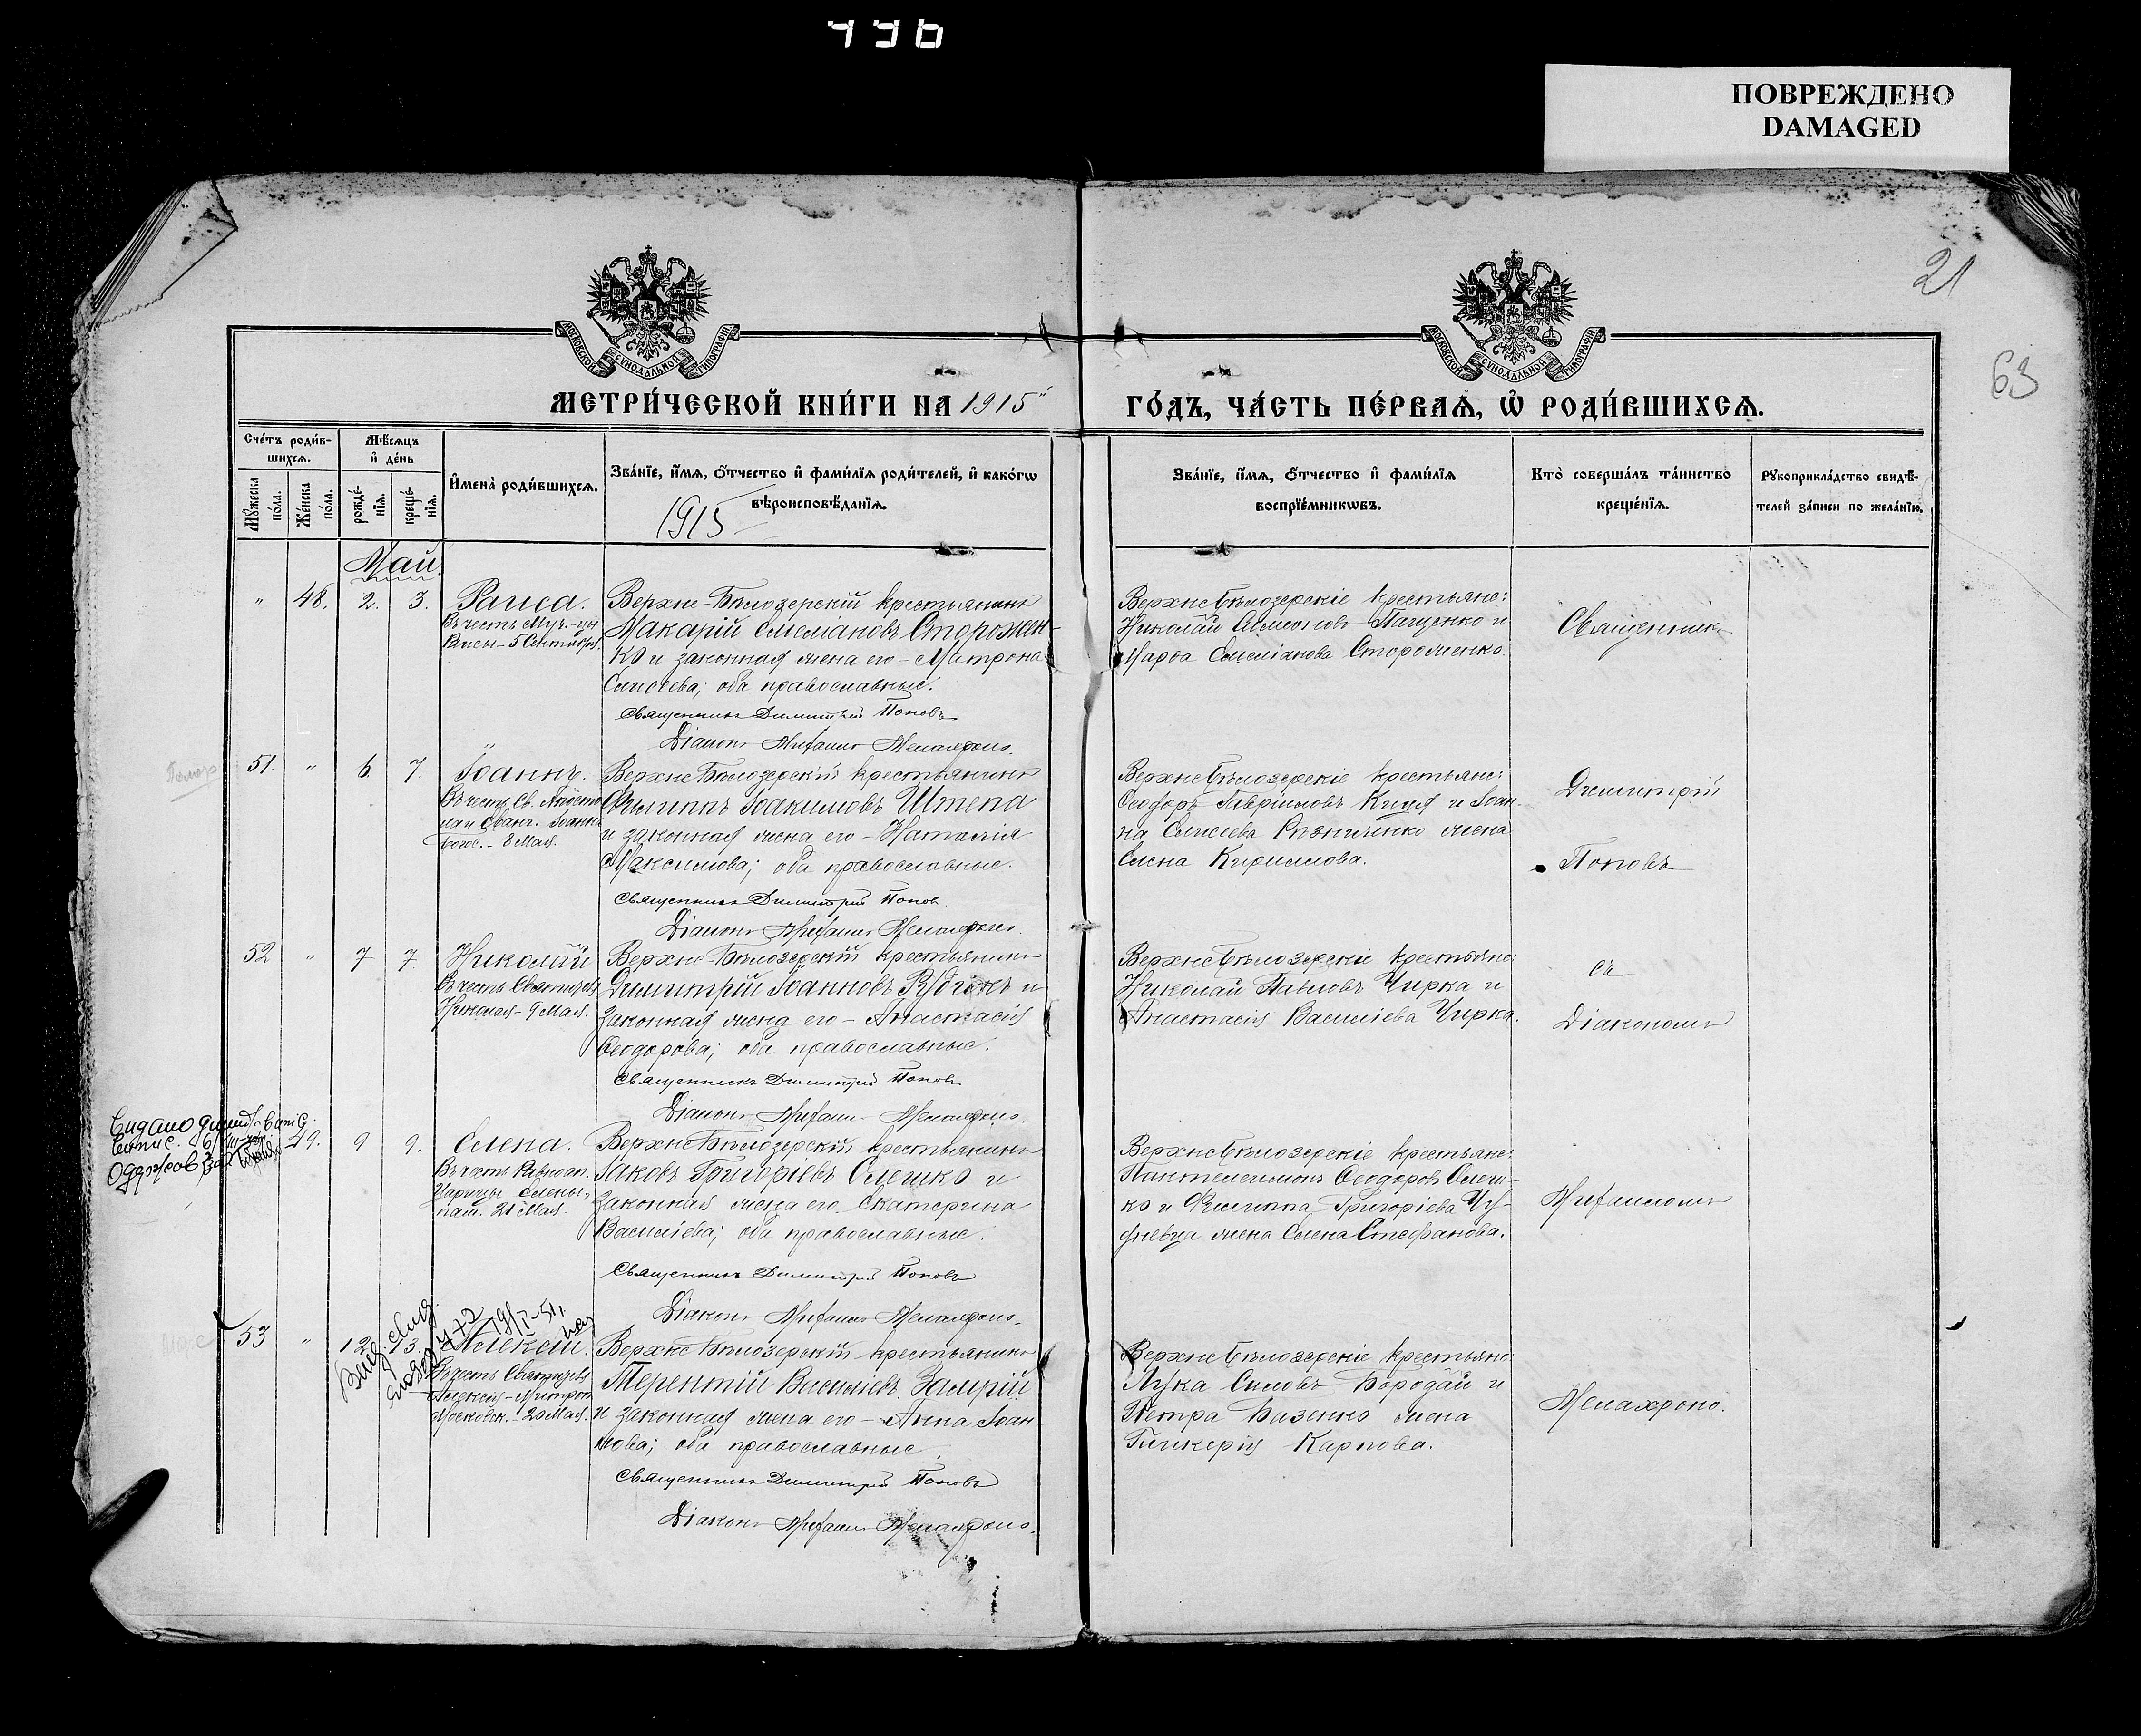 496
ПОВРЕЖДЕНО
DAMAGED
21
63
МОСКОВСКОЙ СѴНОДАЛЬНОЙ ТИПОГРАФІИ
МОСКОВСКОЙ СѴНОДАЛЬНОЙ ТИПОГРАФІИ
МЕТРИ́ЧЕСКОЙ КНИ́ГИ НА 1915
ГО́ДЪ, ЧА́СТЬ ПЕ́РВАѦ, Ѽ РОДИ́ВШИХСѦ.
Сче́тъ роди́в-
шихсѧ.
Мѣ́сѧцъ
и҆ де́нь
Мꙋ́жеска по́ла.
Же́нска по́ла.
рожде́-
нїѧ.
креще́-
нїѧ.
И҆мена̀ роди́вшихсѧ.
Зва́нїе, и҆́мѧ, ѻ҆́тчество и҆ фами́лїѧ роди́телей, и҆ како́гѡ
вѣроисповѣ́данїѧ.
1915
Зва́нїе, и҆́мѧ, ѻ҆́тчество и҆ фами́лїѧ
воспрїе́мникѡвъ.
Кто̀ соверша́лъ та́инство
креще́нїѧ.
Рꙋкоприкла́дство свидѣ́-
телей за́писи по жела́нїю.
Май.
" 48. 2. 3. Раиса.
Въ честь Муч-цы
Раисы - 5 Сентября.
Верхне-Бѣлозерскій крестьянинъ
Макарій Емеліановъ Сторожен-
ко и законная жена его - Матрона
Елисеева; оба православные.
Священникъ Димитрій Поповъ
Діаконъ
Верхнебѣлозерскіе крестьяне:
Николай Пащенко и
Марфа Емеліанова Стороженко.
Священник
51. " 6. 7. Іоаннъ.
Въ честь Св. Апосто
ла и Еванг. Іоанна
Богос. - 8 Мая.
Верхне Бѣлозерскій крестьянинъ
Филиппъ Іоакимовъ Штепа
и законная жена его - Наталія
Максимова; оба православные.
Священникъ Димитрій Попов
Діаконъ
Верхнебѣлозерскіе крестьяне:
Ѳеодоръ Гавріиловъ и Іоан-
на жена
Елена Кириллова.
Димитрій
Поповъ
52 " 7 7 Николай
Въ честь Святителя
Николая - 9 Мая.
Верхне-Бѣлозерскій крестьянинъ
Димитрій Іоанновъ и
законная жена его - Анастасія
Ѳеодорова; оба православные.
Священникъ Димитрій Поповъ
Діаконъ
Верхнебѣлозерскіе крестьяне:
Николай Павловъ Чирка и
Анастасія Василіева Чирка.
съ
Діакономъ
29. 9 9. Елена.
Въ честь Равноап.
Царицы Елены,
пам. 21 Мая.
Верхне Бѣлозерскій крестьянинъ
Іаковъ Григоріевъ Олешко и
законная жена его Екатерина
Василіева; оба православные.
Священникъ Димитрій Поповъ
Діаконъ
Верхнебѣлозерскіе крестьяне:
Пантелеимонъ Ѳеодоровъ Олеш-
ко и Филиппа Григоріева
жена Елена Стефанова.
53 " 12. 13. Алексій.
Въ честь Святителя
Алексія - Митроп.
Московск. - 20 Мая.
Верхне Бѣлозерскій крестьянинъ
Терентій Василіевъ
и законная жена его - Анна Іоан-
нова; оба православные.
Священникъ Димитрій Поповъ
Діаконъ
Верхнебѣлозерскіе крестьяне:
Лука Силовъ Бородай и
Петра Бизенко жена
Гликерія Карпова.